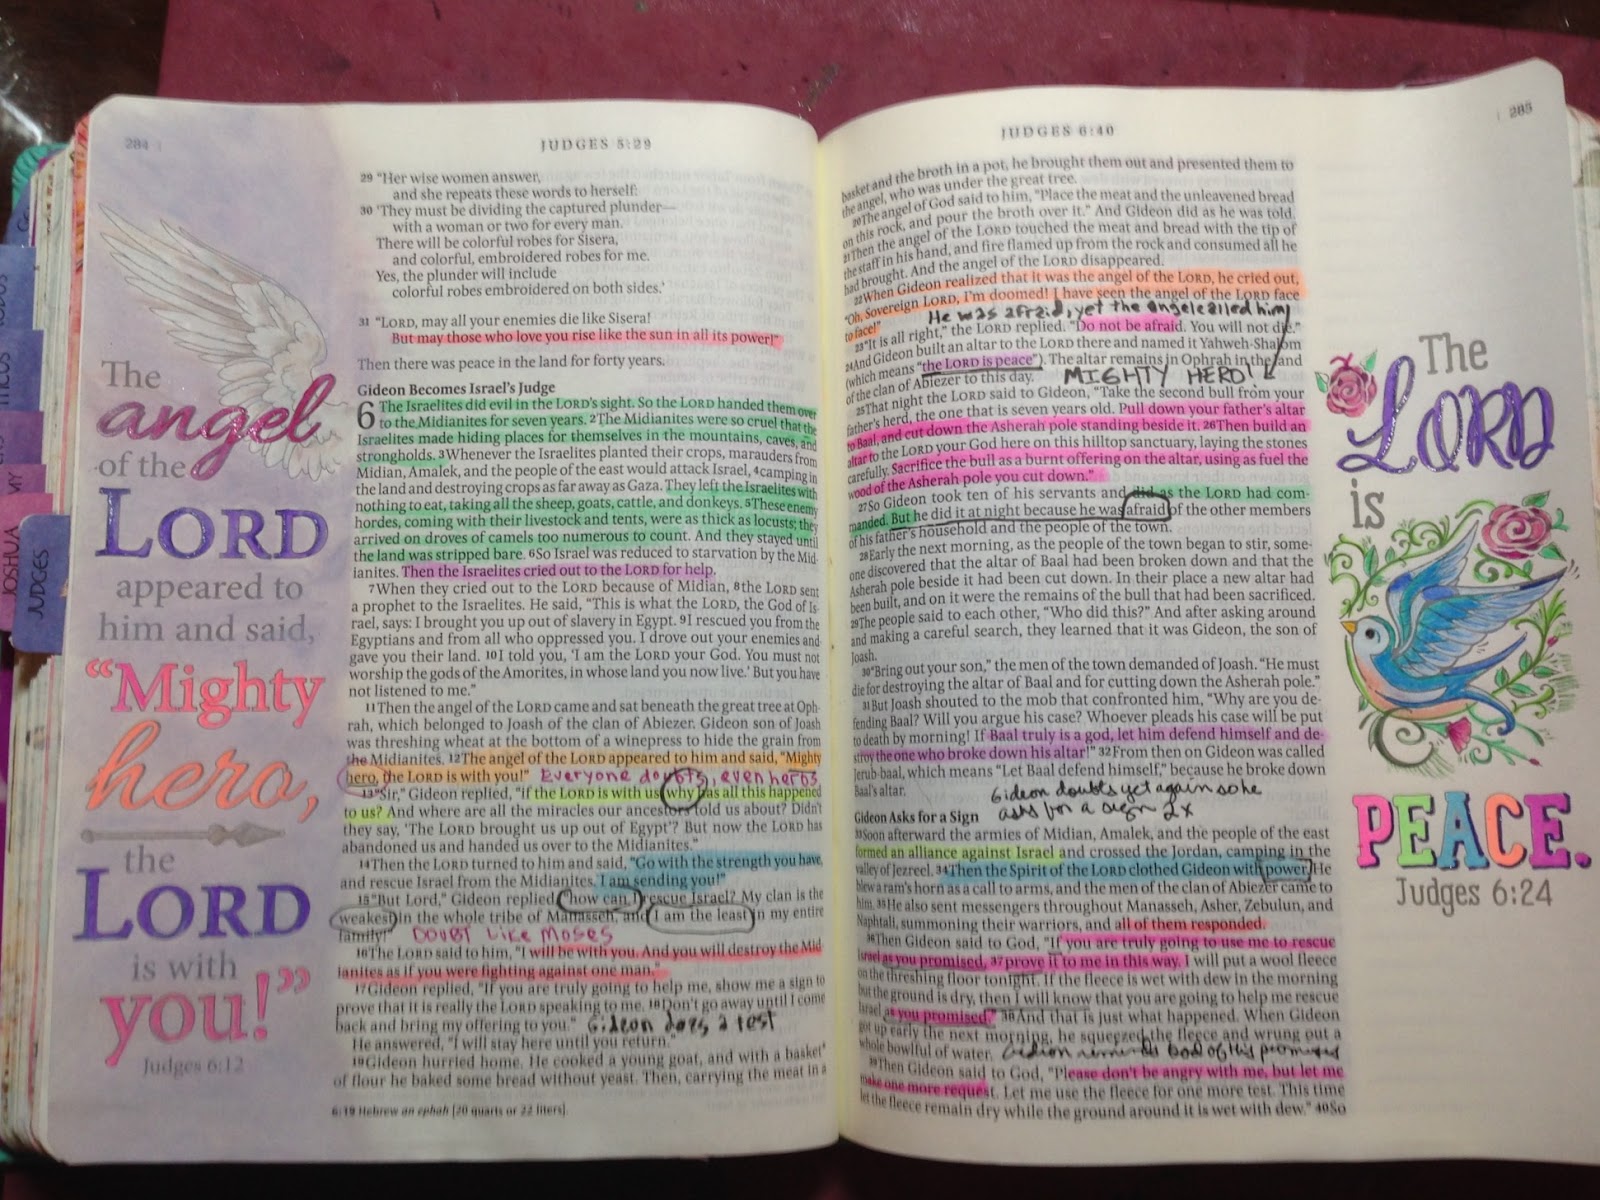 284
JUDGES 5:29
29 "Her wise women answer,
and she repeats these words to herself:
30 'They must be dividing the captured plunder—
with a woman or two for every man.
There will be colorful robes for Sisera,
and colorful, embroidered robes for me.
Yes, the plunder will include
colorful robes embroidered on both sides.'
31 "LORD, may all your enemies die like Sisera!
But may those who love you rise like the sun in all its power!"
Then there was peace in the land for forty years.
Gideon Becomes Israel's Judge
6 The Israelites did evil in the LORD's sight. So the LORD handed them over
to the Midianites for seven years. 2The Midianites were so cruel that the
Israelites made hiding places for themselves in the mountains, caves, and
strongholds. 3Whenever the Israelites planted their crops, marauders from
Midian, Amalek, and the people of the east would attack Israel, 4camping in
the land and destroying crops as far away as Gaza. They left the Israelites with
nothing to eat, taking all the sheep, goats, cattle, and donkeys. 5These enemy
hordes, coming with their livestock and tents, were as thick as locusts; they
arrived on droves of camels too numerous to count. And they stayed until
the land was stripped bare. 6So Israel was reduced to starvation by the Mid-
ianites. Then the Israelites cried out to the LORD for help.
7When they cried out to the LORD because of Midian, 8the LORD sent
a prophet to the Israelites. He said, "This is what the LORD, the God of Is-
rael, says: I brought you up out of slavery in Egypt. 9I rescued you from the
Egyptians and from all who oppressed you. I drove out your enemies and
gave you their land. 10I told you, 'I am the LORD your God. You must not
worship the gods of the Amorites, in whose land you now live.' But you have
not listened to me."
11Then the angel of the LORD came and sat beneath the great tree at Oph-
rah, which belonged to Joash of the clan of Abiezer. Gideon son of Joash
was threshing wheat at the bottom of a winepress to hide the grain from
the Midianites. 12The angel of the LORD appeared to him and said, "Mighty
hero, the LORD is with you!" Everyone doubts, even heros
13"Sir," Gideon replied, "if the LORD is with us, why has all this happened
to us? And where are all the miracles our ancestors told us about? Didn't
they say, 'The LORD brought us up out of Egypt'? But now the LORD has
abandoned us and handed us over to the Midianites."
14Then the LORD turned to him and said, "Go with the strength you have,
and rescue Israel from the Midianites. I am sending you!"
15"But Lord," Gideon replied, "how can I rescue Israel? My clan is the
weakest in the whole tribe of Manasseh, and I am the least in my entire
family!" DOUBT LIKE MOSES
16The LORD said to him, "I will be with you. And you will destroy the Mid-
ianites as if you were fighting against one man."
17Gideon replied, "If you are truly going to help me, show me a sign to
prove that it is really the LORD speaking to me. 18Don't go away until I come
back and bring my offering to you." Gideon does a test
He answered, "I will stay here until you return."
19Gideon hurried home. He cooked a young goat, and with a basket*
of flour he baked some bread without yeast. Then, carrying the meat in a
6:19 Hebrew an ephah [20 quarts or 22 liters].
The
angel
of the
LORD
appeared to
him and said,
"Mighty
hero,
the
LORD
is with
you!"
Judges 6:12
JOSHUA
JUDGES
JUDGES 6:40
285
basket and the broth in a pot, he brought them out and presented them to
the angel, who was under the great tree.
20The angel of God said to him, "Place the meat and the unleavened bread
on this rock, and pour the broth over it." And Gideon did as he was told.
21Then the angel of the LORD touched the meat and bread with the tip of
the staff in his hand, and fire flamed up from the rock and consumed all he
had brought. And the angel of the LORD disappeared.
22When Gideon realized that it was the angel of the LORD, he cried out,
"Oh, Sovereign LORD, I'm doomed! I have seen the angel of the LORD face
to face!" He was afraid, yet the angel called him
23"It is all right," the LORD replied. "Do not be afraid. You will not die."
24And Gideon built an altar to the LORD there and named it Yahweh-Shalom
(which means "the LORD is peace"). The altar remains in Ophrah in the land
of the clan of Abiezer to this day. MIGHTY HERO!
25That night the LORD said to Gideon, "Take the second bull from your
father's herd, the one that is seven years old. Pull down your father's altar
to Baal, and cut down the Asherah pole standing beside it. 26Then build an
altar to the LORD your God here on this hilltop sanctuary, laying the stones
carefully. Sacrifice the bull as a burnt offering on the altar, using as fuel the
wood of the Asherah pole you cut down."
27So Gideon took ten of his servants and did as the LORD had com-
manded. But he did it at night because he was afraid of the other members
of his father's household and the people of the town.
28Early the next morning, as the people of the town began to stir, some-
one discovered that the altar of Baal had been broken down and that the
Asherah pole beside it had been cut down. In their place a new altar had
been built, and on it were the remains of the bull that had been sacrificed.
29The people said to each other, "Who did this?" And after asking around
and making a careful search, they learned that it was Gideon, the son of
Joash.
30"Bring out your son," the men of the town demanded of Joash. "He must
die for destroying the altar of Baal and for cutting down the Asherah pole."
31But Joash shouted to the mob that confronted him, "Why are you de-
fending Baal? Will you argue his case? Whoever pleads his case will be put
to death by morning! If Baal truly is a god, let him defend himself and de-
stroy the one who broke down his altar!" 32From then on Gideon was called
Jerub-baal, which means "Let Baal defend himself," because he broke down
Baal's altar.
Gideon doubts yet again so he
asks for a sign 2x
Gideon Asks for a Sign
33Soon afterward the armies of Midian, Amalek, and the people of the east
formed an alliance against Israel and crossed the Jordan, camping in the
valley of Jezreel. 34Then the Spirit of the LORD clothed Gideon with power. He
blew a ram's horn as a call to arms, and the men of the clan of Abiezer came to
him. 35He also sent messengers throughout Manasseh, Asher, Zebulun, and
Naphtali, summoning their warriors, and all of them responded.
36Then Gideon said to God, "If you are truly going to use me to rescue
Israel as you promised, 37prove it to me in this way. I will put a wool fleece
on the threshing floor tonight. If the fleece is wet with dew in the morning
but the ground is dry, then I will know that you are going to help me rescue
Israel as you promised." 38And that is just what happened. When Gideon
got up early the next morning, he squeezed the fleece and wrung out a
whole bowlful of water. Gideon reminds God of His promised
39Then Gideon said to God, "Please don't be angry with me, but let me
make one more request. Let me use the fleece for one more test. This time
let the fleece remain dry while the ground around it is wet with dew." 40So
The
LORD
is
PEACE.
Judges 6:24